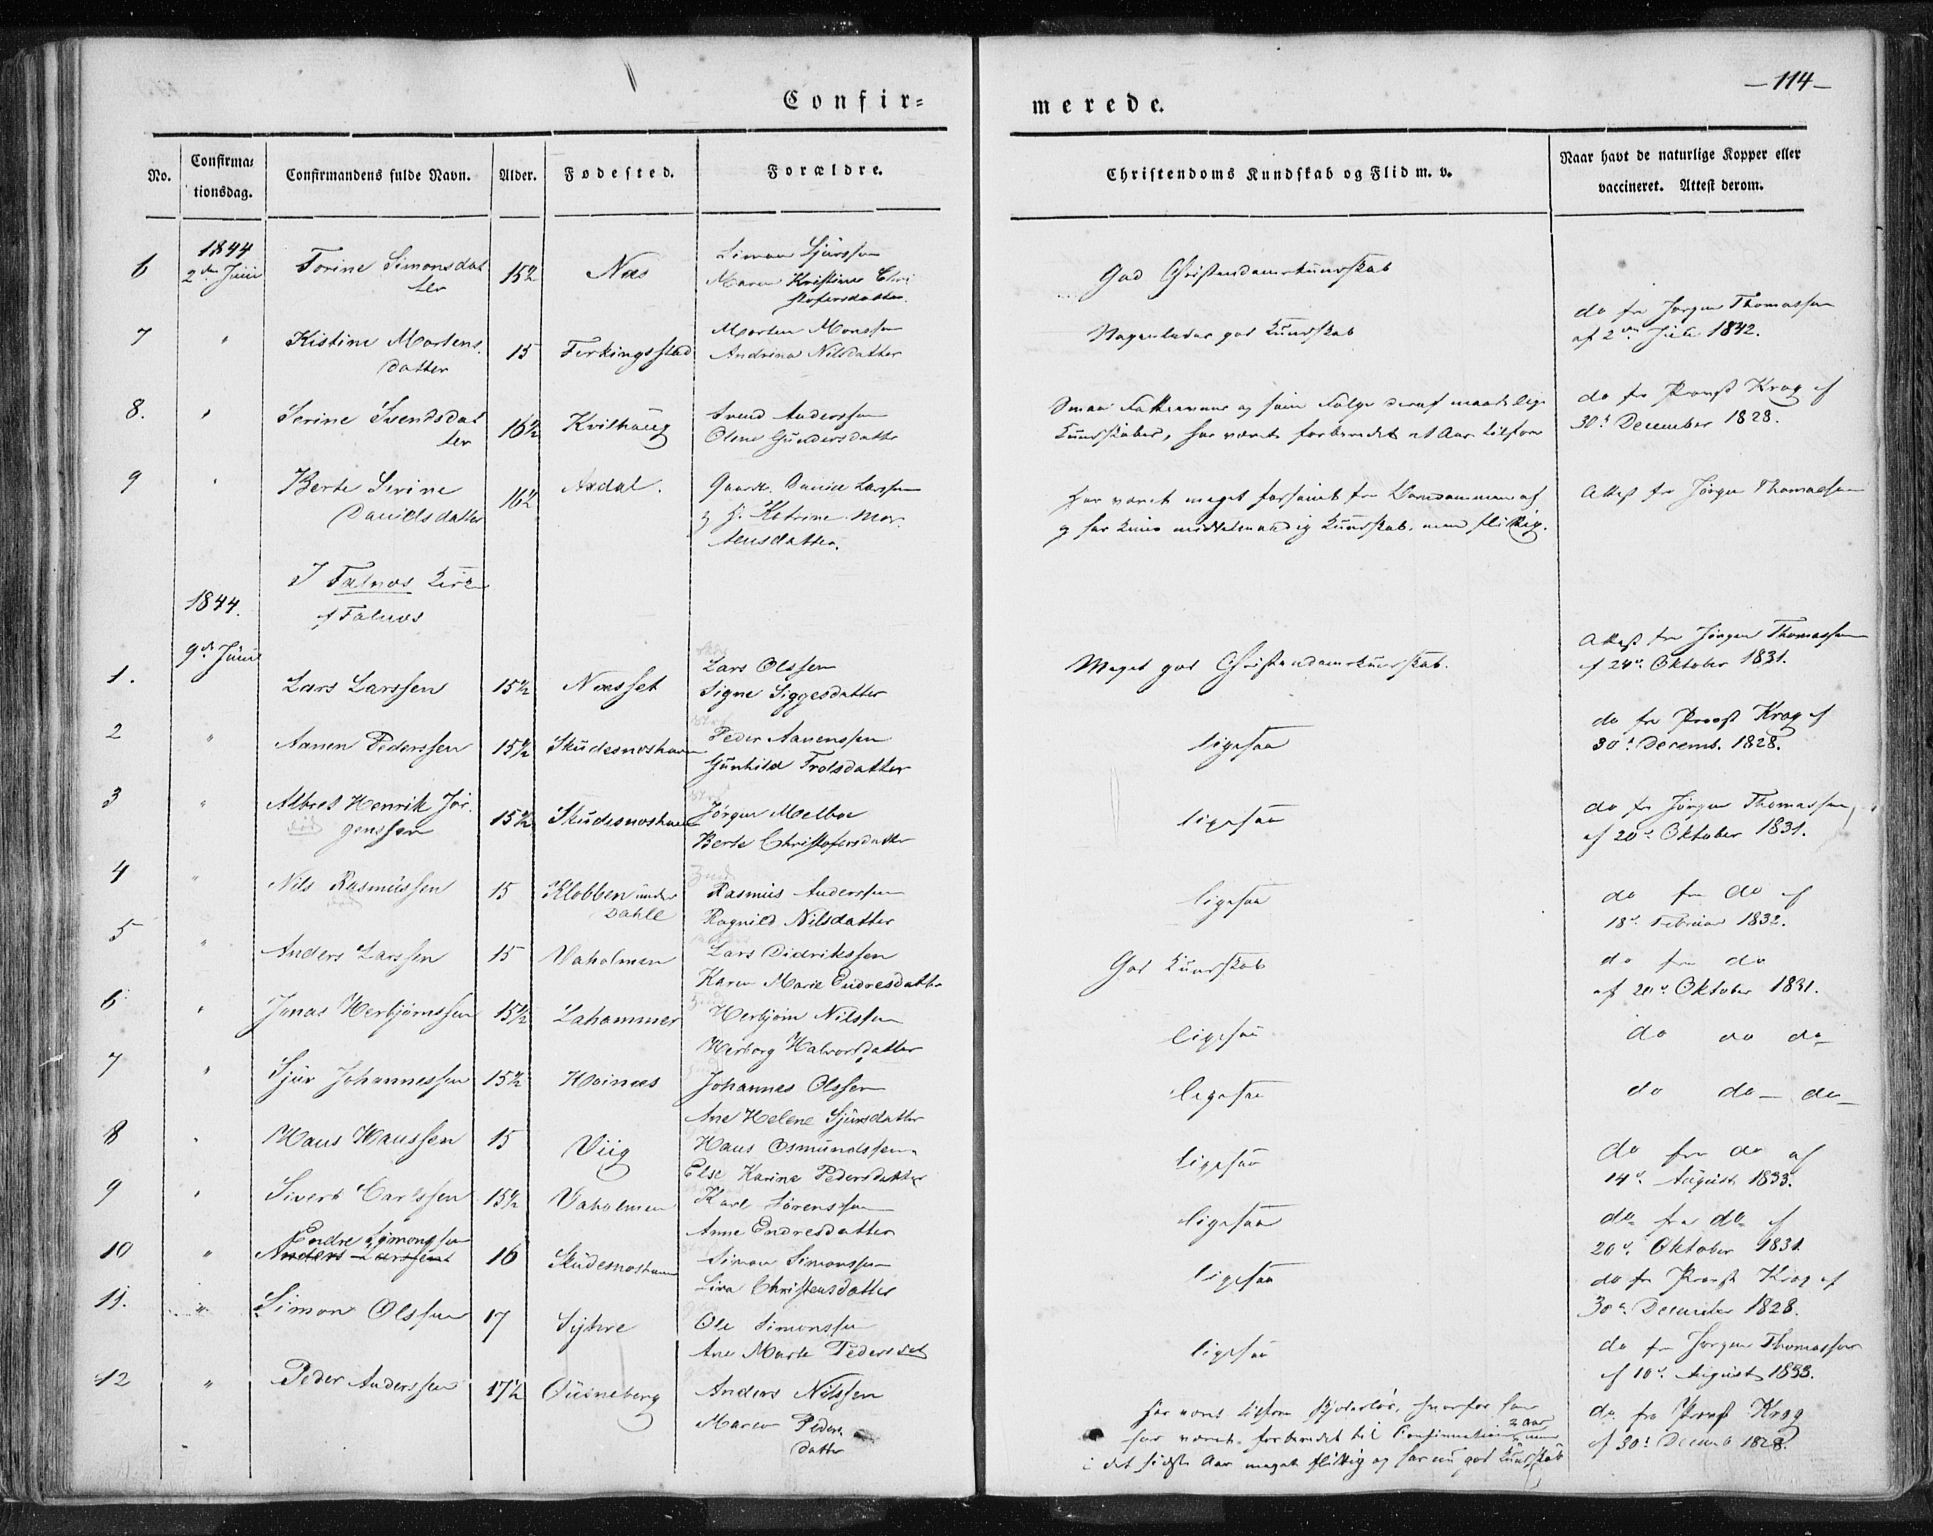 — 114 —
Confir=
merede.
No.
Confirma=
tionsdag.
Confirmandens fulde Navn.
Alder.
Fødested.
Forældre.
Christendoms Kundskab og Flid m. v.
Naar havt de naturlige Kopper eller
vaccineret. Attest derom.
6 1844 2den Juni Torine Simonsdat
ter 15½ Næs Simon Sjursen
Maren Kristine Chri
stofersdatter
God Christendomskundskab
7 " Kistine Mortens
datter 15 Ferkingstad Morten Monsen
Andrina Nilsdatter
Nogenledes god Kundskab
do fra Jørgen Thomassen
af 2den Juli 1832.
8. " Serine Svendsdat
ter 16½ Kvilhaug Svend Anderssen
Olene Gundersdatter
Smaa Fatteevner og som Følge deraf maadelige
Kundskaber, har været forberedet et Aar tilforn
do fra Provst Krog af
30d December 1828.
9 " Berte Serine
Davidsdatter 16½ Axdal. Gaardm. David Larssen
g H. Katrine Mor
tensdatter.
har været meget forsømt fra Barndommen af
og har kuns middelmaadig Kundskab, men flittig.
Attest fra Jørgen Thomassen
I Falnæs Kirke
af Falnæs
1844.
9de Juni
1. Lars Larssen 15½ Næsset Lars Olssen
Signe Siggesdatter
Meget god Christendomskundskab.
Attest fra Jørgen Thomassen
af 24de Oktober 1831.
2 " Aanen Pederssen 15½ Skudesnæshavn Peder Aanenssen
Gunhild Trolsdatter
ligesaa
do fra Provst Krog af
30d Decemb. 1828.
3 " Albret Henrik Jør
død genssen 15½ Skudesnæshavn Jørgen Melboe
Berte Christofersdatter
ligesaa
do fra Jørgen Thomassen
af 20d Oktober 1831.
4 " Nils Rasmussen
død 15 Klobben under
Dahle Rasmus Anderssen
Ragnild Nilsdatter
ligesaa
do fra do af
18d Februar 1832.
5 " Anders Larssen 15 Vaholmen Lars Didrikssen
Karen Marie Endresdatter
God Kundskab
do fra do
af 20d Oktober 1831.
6 " Jonas Herbjørnssen 15½ Lahammer Herbjørn Nilssen
Herborg Halvorsdatter
ligesaa
do do do
7 " Sjur Johannessen 15½ Høinæs Johannes Olssen
Ane Helene Sjursdatter
ligesaa
do do — do
8 " Hans Hanssen 15 Viig Hans Osmundssen
Else Karine Pedersdatter
ligesaa
do fra do af
14d August 1833.
9 " Sivert Carlssen 15½ Vaholmen Karl Sørenssen
Anne Endresdatter
ligesaa
do fra do af
20d Oktober 1831
10 " Endre Simonssen
Anders Larssen 16 Skudesnæshavn Simon Simonssen
Liva Christensdatter
ligesaa
do fra Provst Krog af
30d December 1828.
11. " Simon Olssen 17 Syhre Ole Simonssen
Ane Marte Pedersdat
ligesaa
do fra Jørgen Thomassen
af 10d August 1833.
12 " Peder Anderssen 17½ Quineberg Anders Nilssen
Maren Peders
datter
har været tilforn skjødesløs, hvorfor han
har været forberedet til Confirmation 2 Aar, men
i det sidste Aar meget flittig og har nu god Kundskab
do fra Provst Krog
af 30d Decemb 1828.